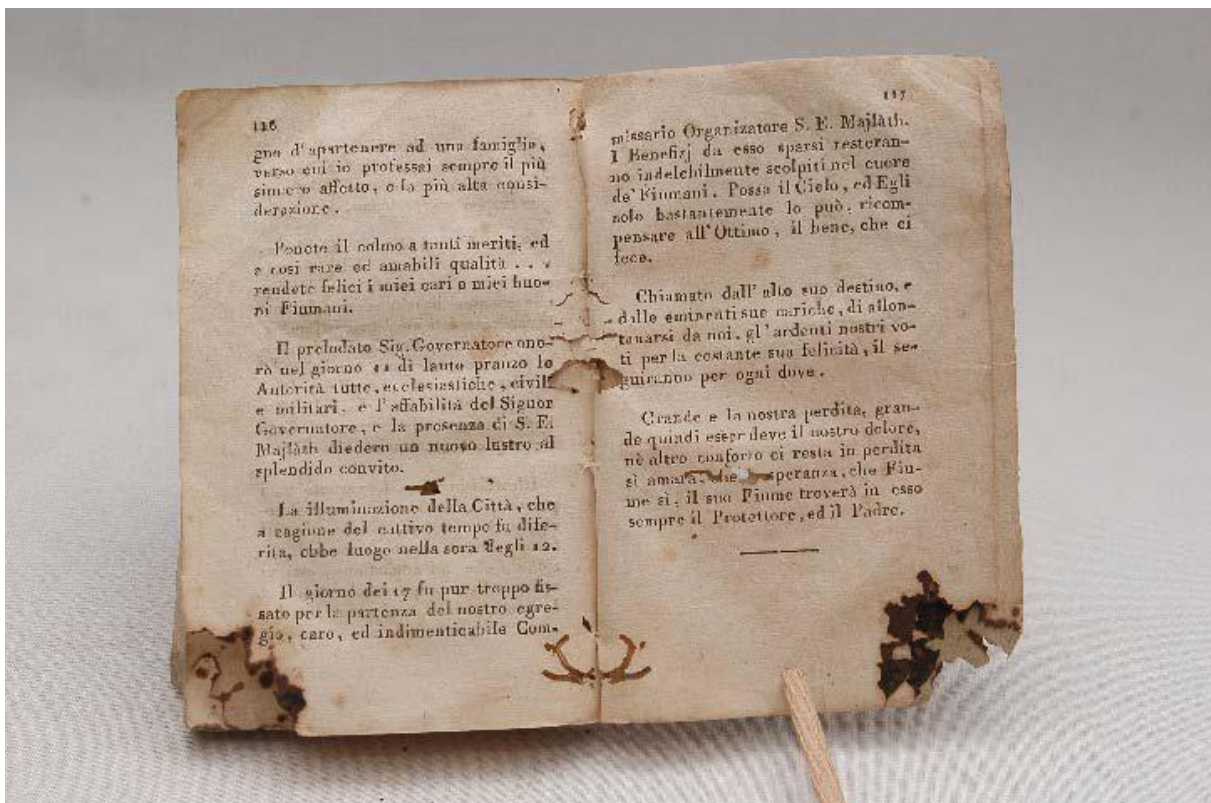 116
gno d'apartenere ad una famiglia,
verso cui io professai sempre il più
sincero affetto, e la più alta consi-
derazione.
Ponete il colmo a tanti meriti, ed
a così rare ed amabili qualità . . .
rendete felici i miei cari o miei buo-
ni Fiumani.
Il preludato Sig. Governatore ono-
rò nel giorno 11 di lauto pranzo le
Autorità tutte, ecclesiastiche, civili
e militari, e l'affabilità del Signor
Governatore, e la presenza di S. E.
Majlàth diedero un nuovo lustro al
splendido convito.
La illuminazione della Città, che
a cagione del cattivo tempo fu diffe-
rita, ebbe luogo nella sera degli 12.
Il giorno dei 17 fu pur troppo fis-
sato per la partenza del nostro egre-
gio, caro, ed indimenticabile Com-
117
missario Organizatore S. E. Majlàth.
I Benefizj da esso sparsi resteran-
no indelebilmente scolpiti nel cuore
de' Fiumani. Possa il Cielo, ed Egli
solo bastantemente lo può, ricom-
pensare all'Ottimo, il bene, che ci
fece.
Chiamato dall'alto suo destino, e
dalle eminenti sue cariche, di allon-
tanarsi da noi, gl'ardenti nostri vo-
ti per la costante sua felicità, il se-
guiranno per ogni dove.
Grande e la nostra perdita, gran-
de quindi esser deve il nostro dolore,
nè altro conforto ci resta in perdita
sì amara, che speranza, che Fiu-
me sì, il suo Fiume troverà in esso
sempre il Protettore, ed il Padre.